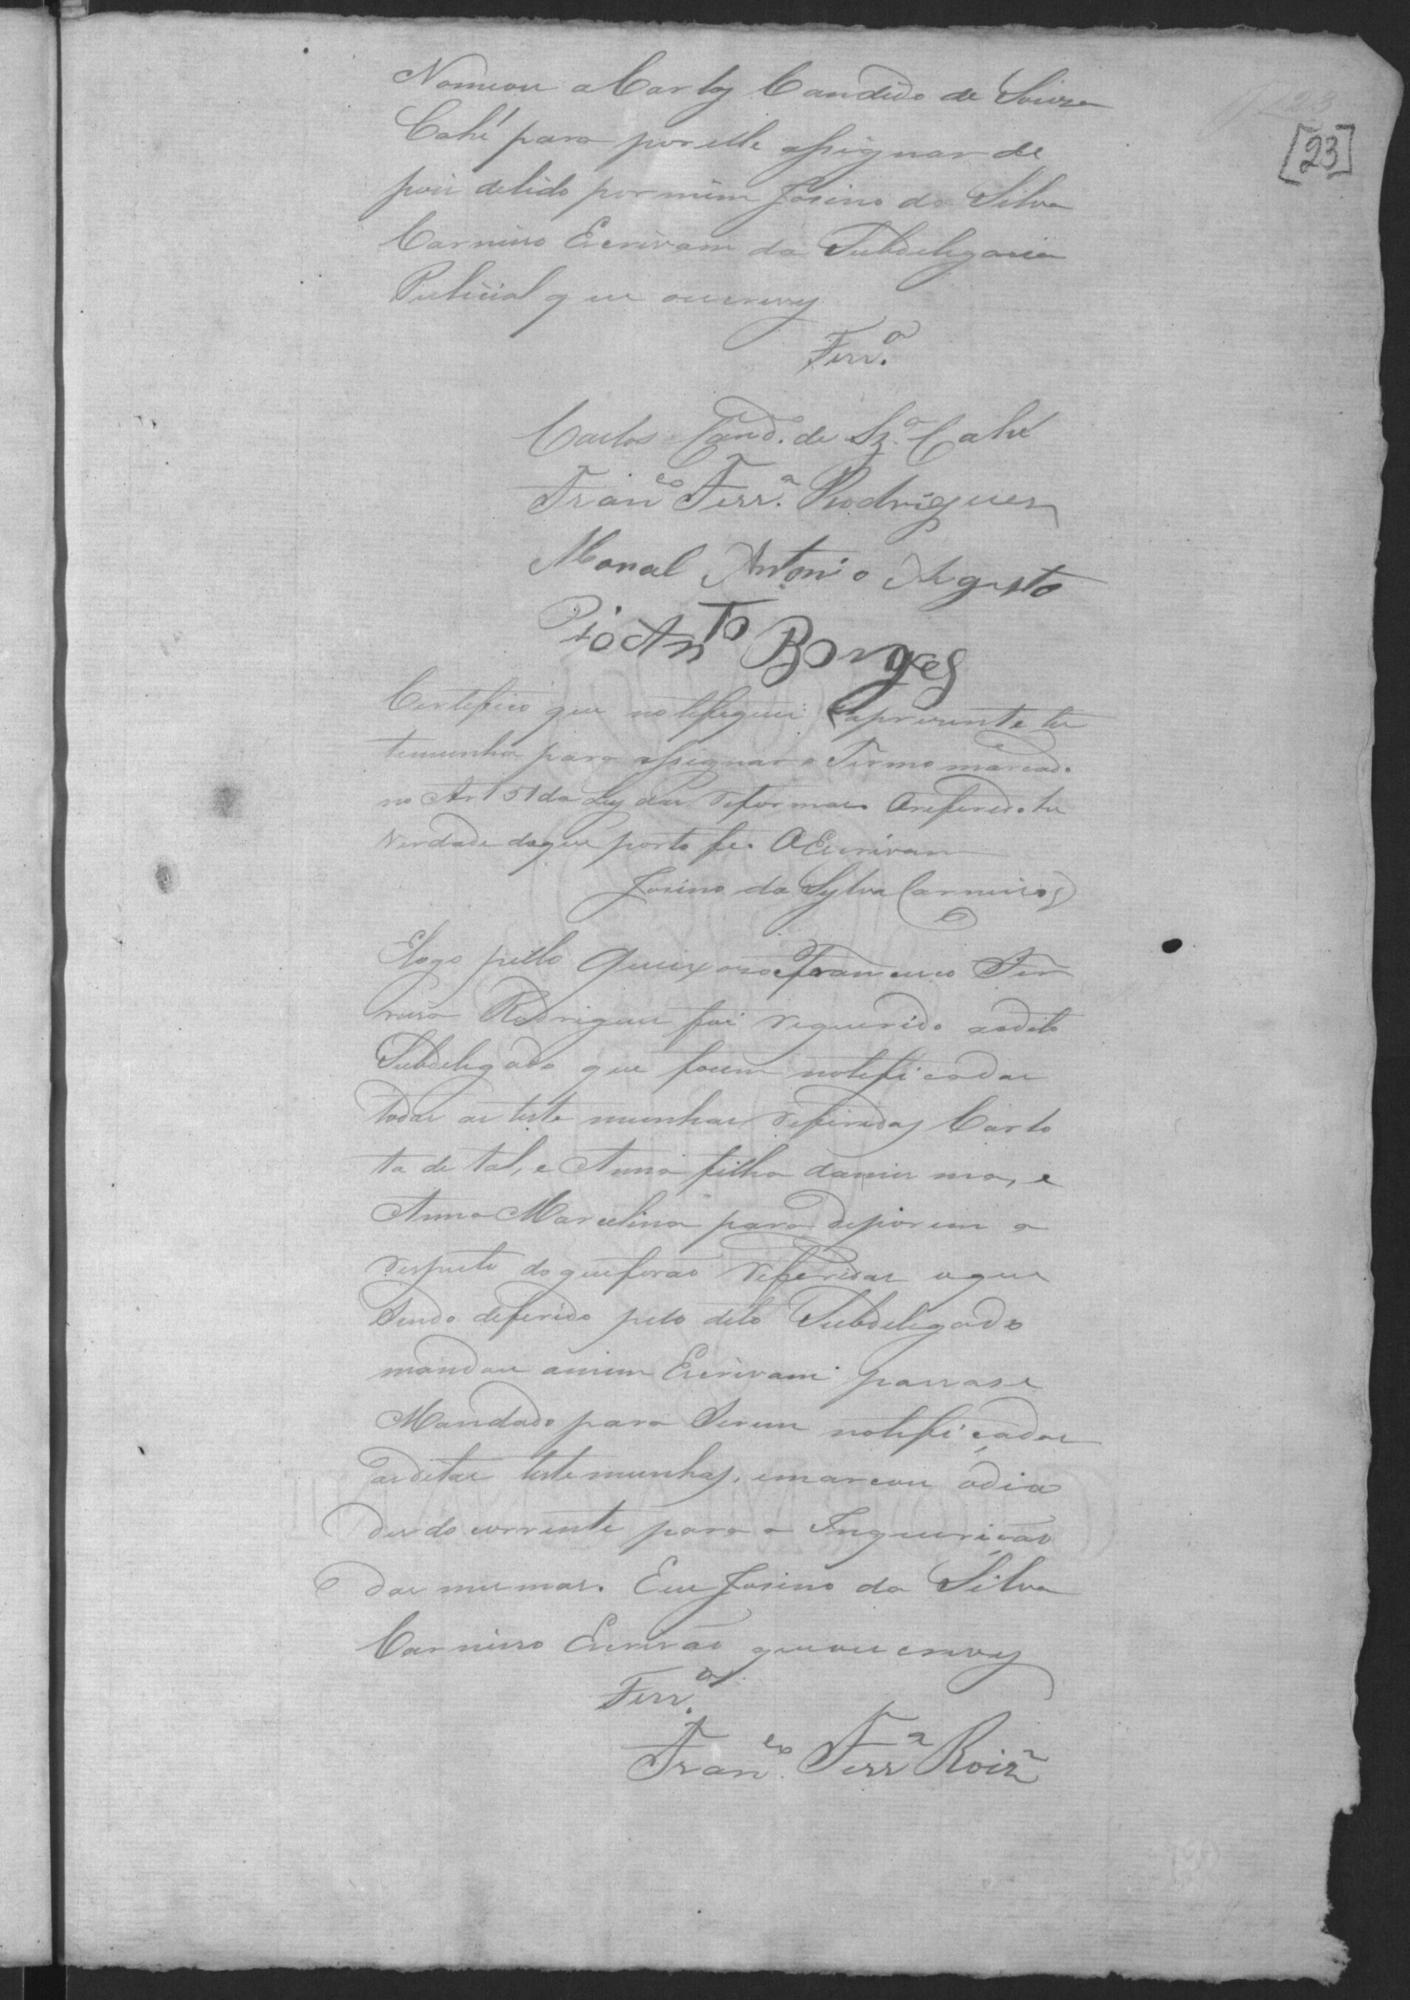 [23]
Nomeou a Carlos Candido de Souza
Cahé para por elle assignar de
pois de lido por mim Josino da Silva
Carneiro Escrivam da Subdelegacia
Policial que o escrevy
Ferrª
Carlos Candº. de Szª. Cahé
Francº Ferrª. Rodrigues
Manoel Antonio Augusto
Pio Antº Borges
Certifico que notefiquei a prezente tes
temunha para assignar o Termo marcado
no Art 51 da Ley das Reformas. O referido he
verdade do que porto fé. O Escrivam
Josino da Sylva Carneiro
E logo pello Queixoso Francisco Fer
reira Rodrigues foi requerido ao dito
Subdelegado que focem notificadas
todas as teste munhas referidas Carlo
ta de tal, e Anna filha da mes ma, e
Anna Marcelina para deporem a
respeito do que forão referidas o que
sendo deferido pelo dito Subdelegado
mandou a mim Escrivam passase
Mandado para serem notificadas
as ditas teste munhas, e marcou o dia
des do corrente para a Inquirição
das mes mas. Eu Josino da Silva
Carneiro Escrivão que o escrevy
Ferrª.
Francº. Ferrª Roiz